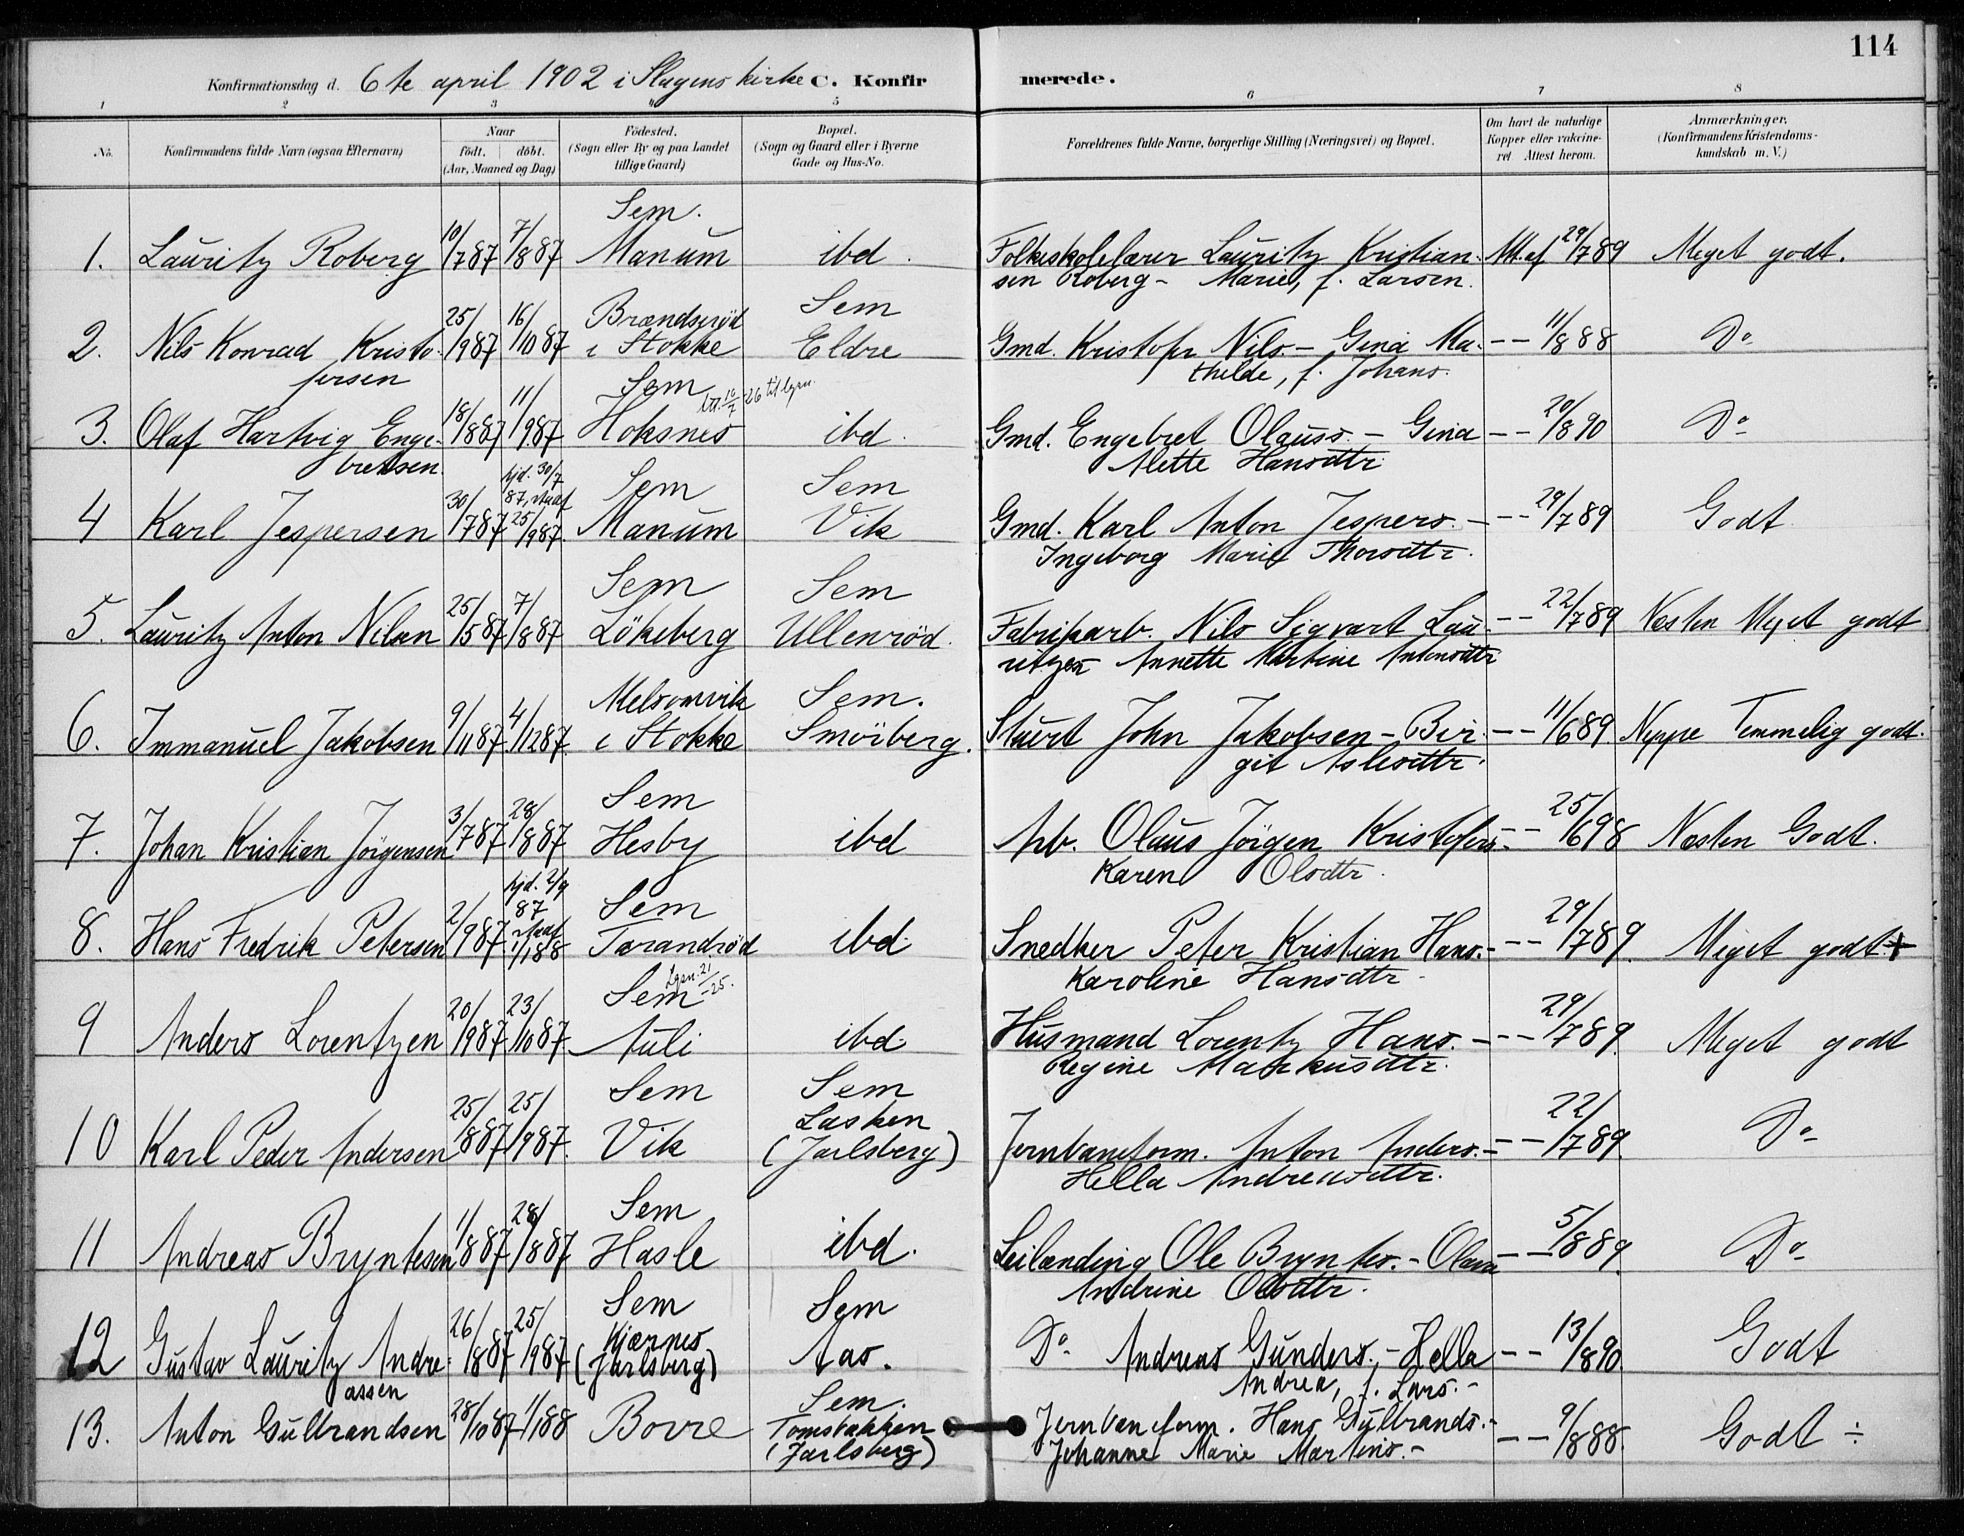 114
Konfirmationsdag d. 6te april 1902 i Slagens kirke C. Konfir merede.
1 2 3 4 5 6 7 8
No. Konfirmandens fulde Navn (ogsaa Efternavn) Naar födt. döbt. (Aar, Maaned og Dag) Födested. (Sogn eller By og paa Landet tillige Gaard) Bopæl. (Sogn og Gaard eller i Byerne Gade og Hus-No. Forældrenes fulde Navne, borgerlige Stilling (Næringsvei) og Bopæl. Om havt de naturlige Kopper eller vakcineret Attest herom. Anmærkninger. (Konfirmandens Kristendomskundskab m. V.)
Sem.
1. Lauritz Roberg 10/7 87 7/8 87 Manum ibd. Folkeskolelærer Lauritz Kristian- Att. af 29/7 89 Meget godt.
sen Roberg - Marie, f. Larsen.
Brændsrød Sem
2. Nils Konrad Kristo- 25/9 87 16/10 87 i Stokke Eldre Gmd. Kristofer Nils. - Gina Ma- - - 11/8 88 Do
fersen thilde, f. Johans.
Sem
3. Olaf Hartvig Enge- 18/8 87 11/9 87 Hoksnes ibd. Gmd. Engebret Olauss. - Gina - - 20/8 90 Do
bretsen. Alette Hansdtr.
hjd. 30/7 87, stadf Sem Sem
4 Karl Jespersen 30/7 87 25/9 87. Manum Vik Gmd. Karl Anton Jespers. - - - 29/7 89 Godt
Ingeborg Marie Thorsdtr.
Sem Sem
5. Lauritz Anton Nilsen 25/5 87 7/8 87 Lökeberg Ullenröd. Fabrikarb. Nils Sigvart Lau- - - 22/7 89 Næsten Meget godt
ritzen Annette Martine Antonsdtr
Melsomvik Sem.
6. Immanuel Jakobsen 9/11 87 4/12 87 i Stokke Smörberg. Stuert John Jakobsen - Bir- - - 11/6 89. Nyppe Temmelig godt.
git Aslesdttr.
Sem
7. Johan Kristian Jörgensen 3/7 87 28/8 87 Hesby ibd Arb. Olaus Jörgen Kristofers. - - 25/6 98 Næsten Godt.
Karen Olsdtr.
hjd. 2/9 87 stadf Sem
8. Hans Fredrik Petersen 2/9 87 1/1 88 Tarandrød ibd. Snedker Peter Kristian Hans. - - - 29/7 89. Meget godt +
Karoline Hansdtr
Sem
9 Anders Lorentzen 20/9 87 23/10 87 Auli ibd. Husmand Lorentz Hans. - - - 29/7 89. Meget godt
Regine Markusdtr.
Sem Sem
Lasken
10 Karl Peder Andersen 25/8 87 25/9 87. Vik (Jarlsberg) Jernbaneform. Anton Anders. - - - 22/7 89. Do
Hella Andreasdtr.
Sem
11 Andreas Bryntesen 1/8 87 28/8 87 Hasle ibd. Leilænding Ole Bryntes. - Olava - - 5/8 89. Do
Andrine Olsdtr.
Sem Sem
Kjærnes
12 Gustav Lauritz Andre- 26/8 87 25/9 87 (Jarlsberg) Aas. Do Andreas Gunders. - Hella - - 13/8 90 Godt
assen Andrea, f. Lars. -
Sem.
13. Anton Gulbrandsen 28/10 87 1/1 88 Borre Tomsbakken Jernbaneform. Hans Gulbrands. - - - 9/8 88. Godt ÷
(Jarlsberg) Johanne Marie Martins. -